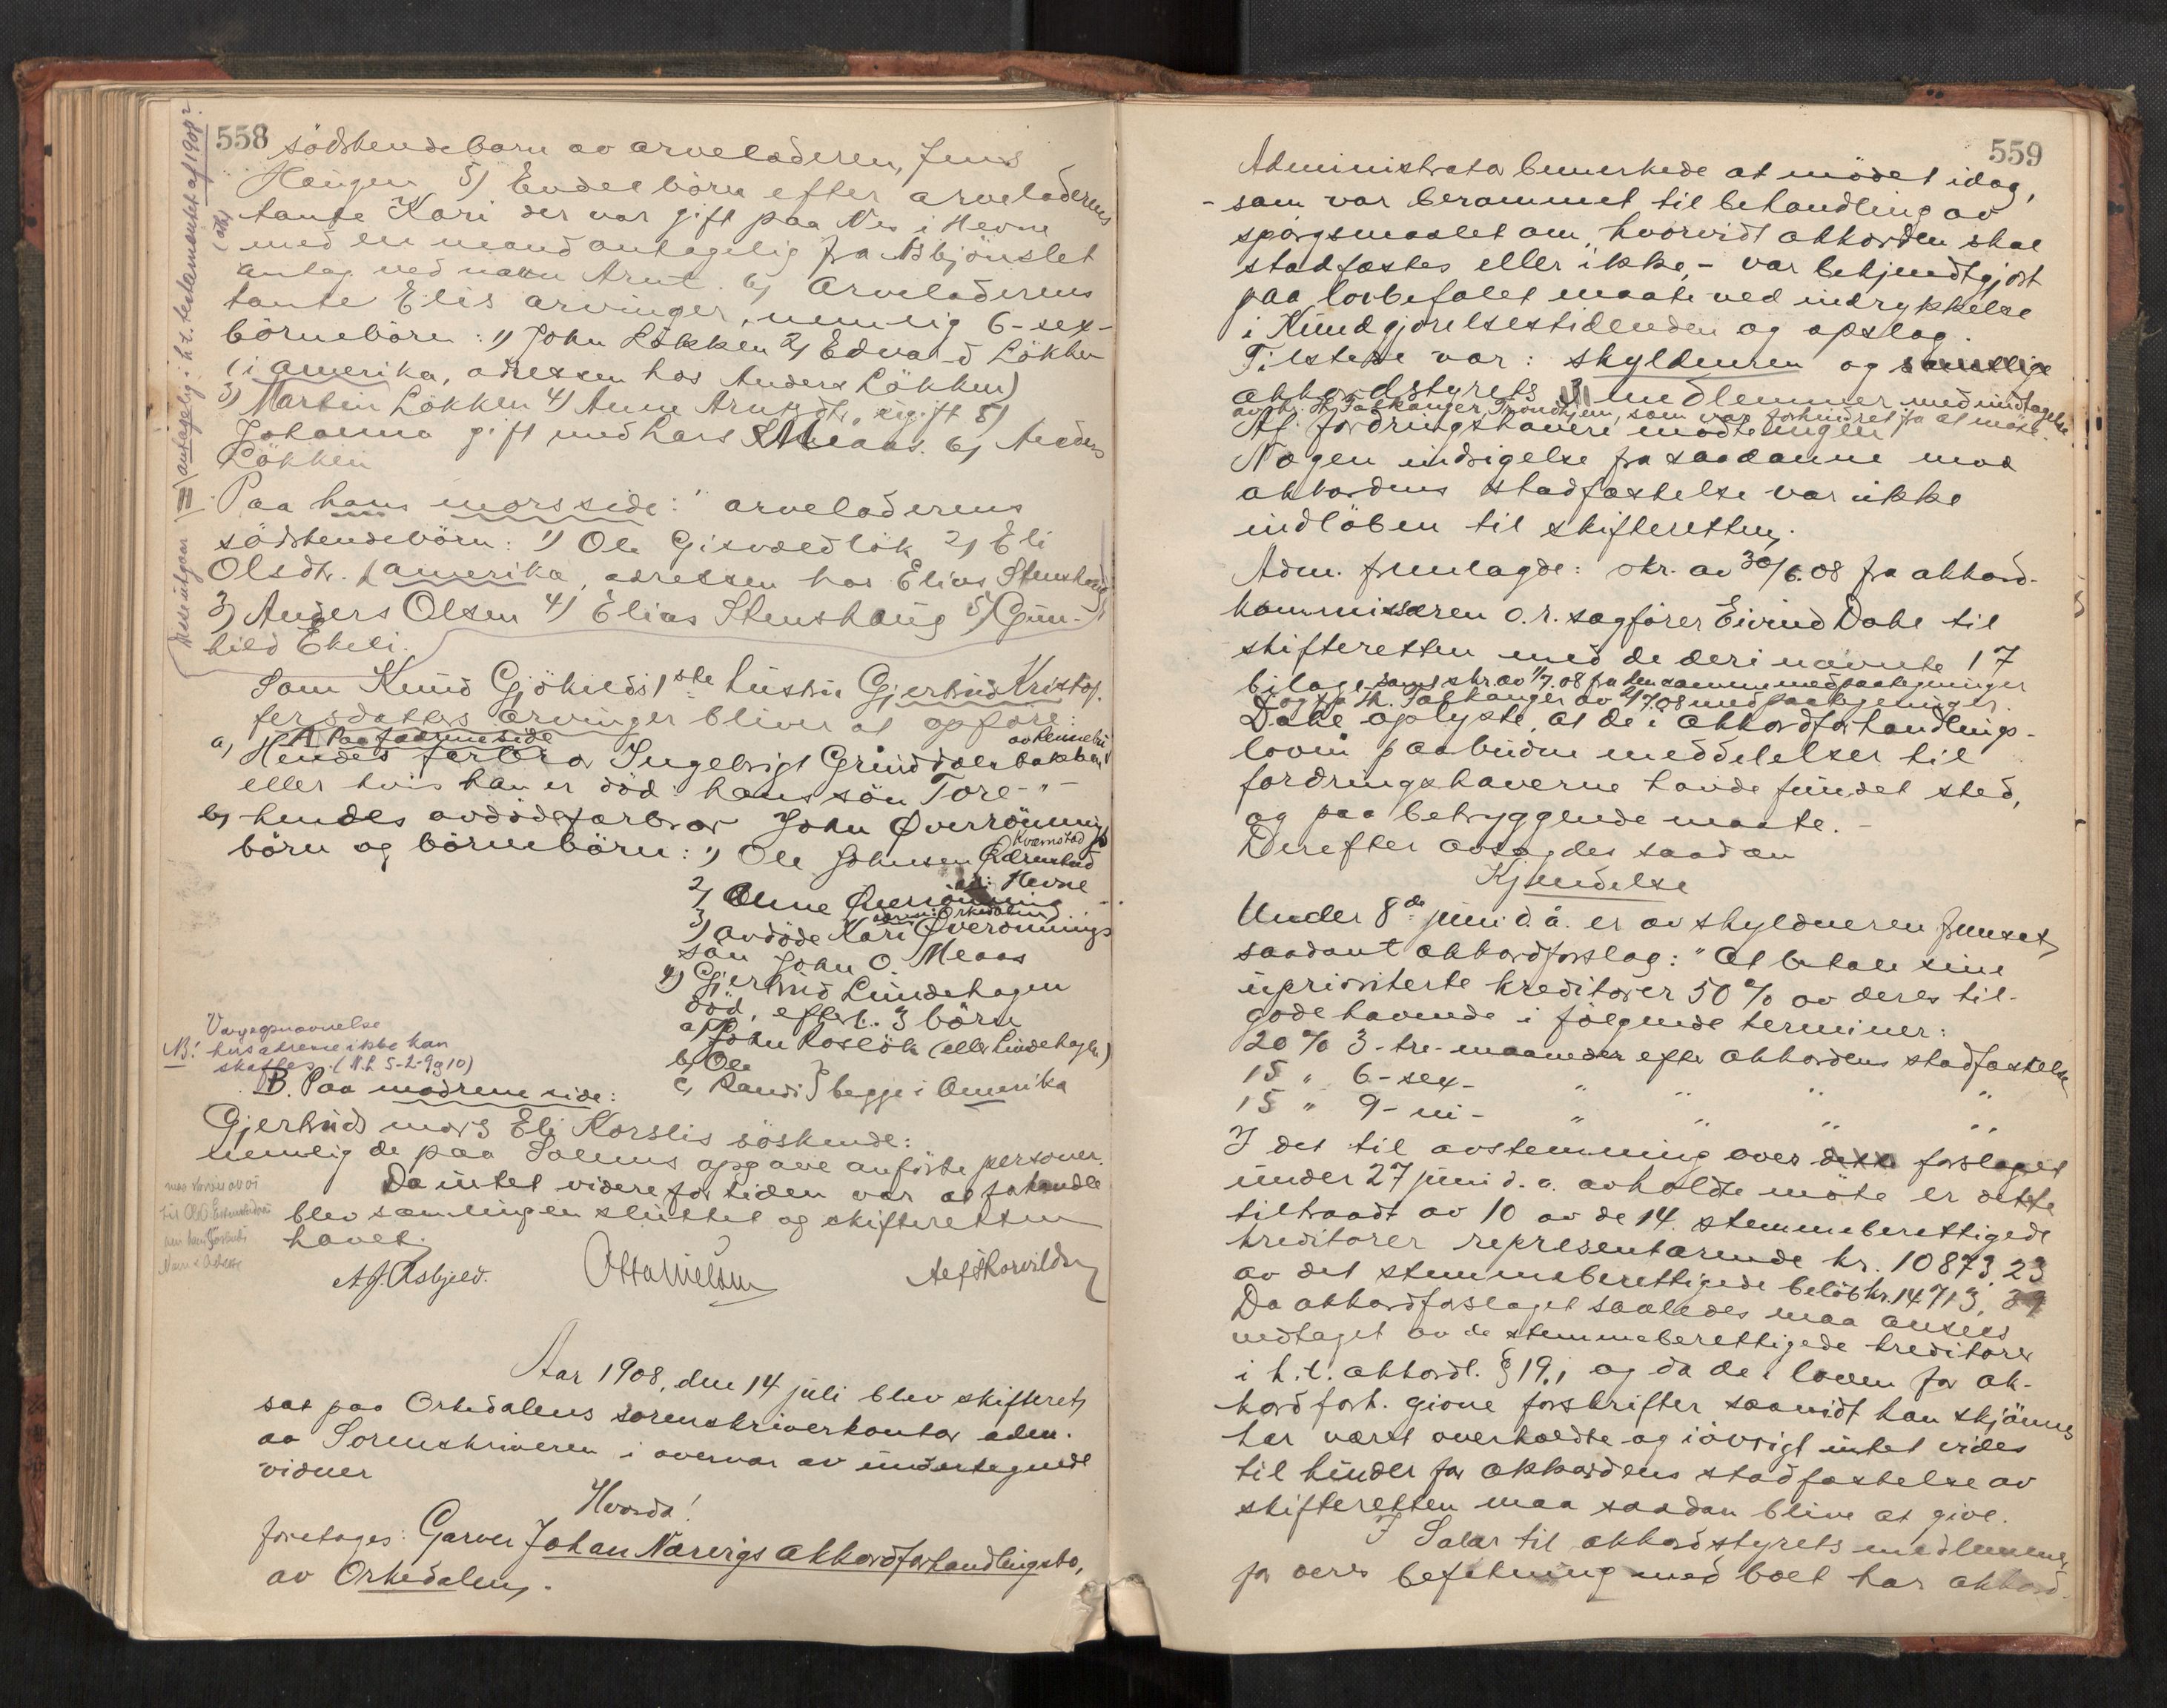 558
södskendebarn av arveladeren, Jens
Haugen 5) Endel börn efter arveladerens
tante Kari der var gift paa Nes i Hevne
med en mand antagelig fra Asbjönslet
antag. ved navn Arnt. 6) Arveladerens
tante Elis arvinger, nemlig 6-sex-
börnebörn: 1) John Lökken 2) Edvard Lökken
(i Amerika, adressen hos Anders Lökken)
3) Martin Lökken 4) Anne Arntsdtr, ugift 5)
Johanna gift med Lars Meaas. 6) Anders
Lökken
Paa hans mors side: arveladerens
södskendebörn: 1) Ole Gisvaldlök 2) Eli
Olsdtr. (Amerika, adressen hos Elias Stenshaug)
3) Anders Olsen 4) Elias Stenshaug 5) Gun-
hild Ekeli.
(disse utgaar antagelig i h.t. testamentet af 1908?
Som Knud Gjökilds 1ste hustru Gjertrud Kristof-
fersdatters arvinger bliver at opföre:
A. Paa fædrene side
a) Hendes farbror Ingebrigt Grinddalsbakken
eller hvis han er död: hans sön Tore -"-
b) hendes avdöde farbror John Øverrönnings
börn og börnebörn: 1) Ole Johnsen Kværnstad
adr: Hevne
2) Anne Øverrönning
adresse: Orkedalen
3) avdöde Kari Øverönnings
sön John O. Meaas
4) Gjertrud Lindehagen
död, efterl. 3 börn
a) John Roslök (eller Lindehagen)
b) Ole
c) Randi } begge i Amerika
NB! hvis adresse ikke kan
skaffes. (N.L. 5-2-9 og 10)
B. Paa mödrene side:
Gjertruds mors Eli Korslis söskende:
nemlig de paa Solems opgave anförte personer.
Da intet videre for tiden var at forhandle
blev samlingen sluttet og skifteretten
hævet.
A. J. Asbjeld. Otto Nielsen
Aar 1908, den 14 juli blev skifteret
sat paa Orkedalens sorenskriverkontor adm.
av Sorenskriveren i overvær av undertegnede
vidner
Hvorda!
foretages: Garver Johan Nærvigs akkordforhandlingsbo,
av Orkedalen.
559
Administrator bemerkede at mödet idag,
- som var berammet til behandling av
spörgsmaalet om, hvorvidt akkorden skal
stadfæstes eller ikke, - var bekjendtgjort
paa lovbefalet maate ved indrykkelse
i Kundgjörelsestidenden og opslag.
Tilstede var: skyldneren og samtlige
akkordstyrets medlemmer med undtagelse
av hr. H. Falkanger, Trondhjem, som var forhindret fra at möte.
Af fordringshavere mödte ingen
Nogen indsigelse fra saadanne mod
akkordens stadfæstelse var ikke
indlöben til skifteretten.
Adm. fremlagde: skr. av 30/6.08 fra akkord-
kommissæren o.r. sagförer Eivind Dahl til
skifteretten med de deri nævnte 17
bilage samt skr. av 1/7.08 fra densamme med paategninger
og fra H. Falkanger av 4/7.08 med paategninger.
Dahl oplyste, at de i akkordforhandlings-
loven paabudne meddelelser til
fordringshaverne havde fundet sted,
og paa betryggende maate. -
Derefter avsagdes saadan
Kjendelse
Under 8de juni d.å. er av skyldneren fremsat
saadant akkordforslag: "At betale sine
uprioriterte kreditorer 50 % av deres til-
godehavende i fölgende terminer:
20 % 3 - tre - maaneder efter akkordens stadfæstelse
15 " 6 - sex - " " " "
15 " 9 - ni - " " " "
I det til avstemning over forslaget
under 27 juni d.a. avholdte möte er dette
tiltraadt av 10 av de 14 stemmeberettigede
kreditorer repræsenterende kr. 10873,23
av det stemmeberettigede belöb kr. 14713,39
Da akkordforslaget saaledes maa ansees
vedtaget av de stemmeberettigede kreditorer
i h.t. akkordl. § 19,1 og da de i loven for ak-
kordforh. givne forskrifter saavidt kan skjönnes
har været overholdte og iövrigt intet vides
til hinder for akkordens stadfæstelse av
skifteretten maa saadan blive at give.
I Salær til akkordstyrets medlemmer
for deres befatning med boet har akkord-